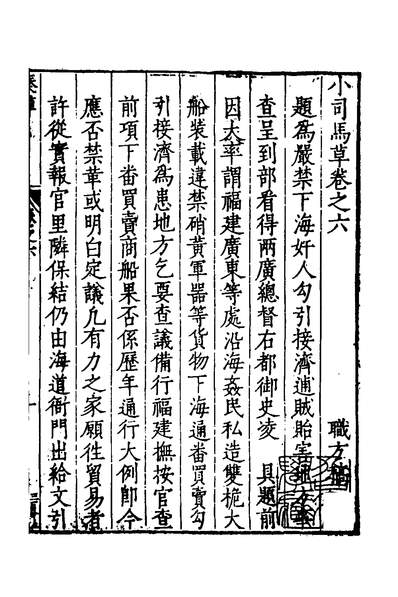 小司馬草卷之六
職方
題為嚴禁下海奸人勾引接濟逋賊貽害地方事
查呈到部看得兩廣總督右都御史凌　具題前
因大率謂福建廣東等處沿海姦民私造雙桅大
船裝載違禁硝黃軍器等貨物下海通番買賣勾
引接濟為患地方乞要查議備行福建撫按官查
前項下番買賣商船果否係歷年通行大例即今
應否禁革或明白定議凡有力之家願往貿易者
許從實報官里隣保結仍由海道衙門出給文引